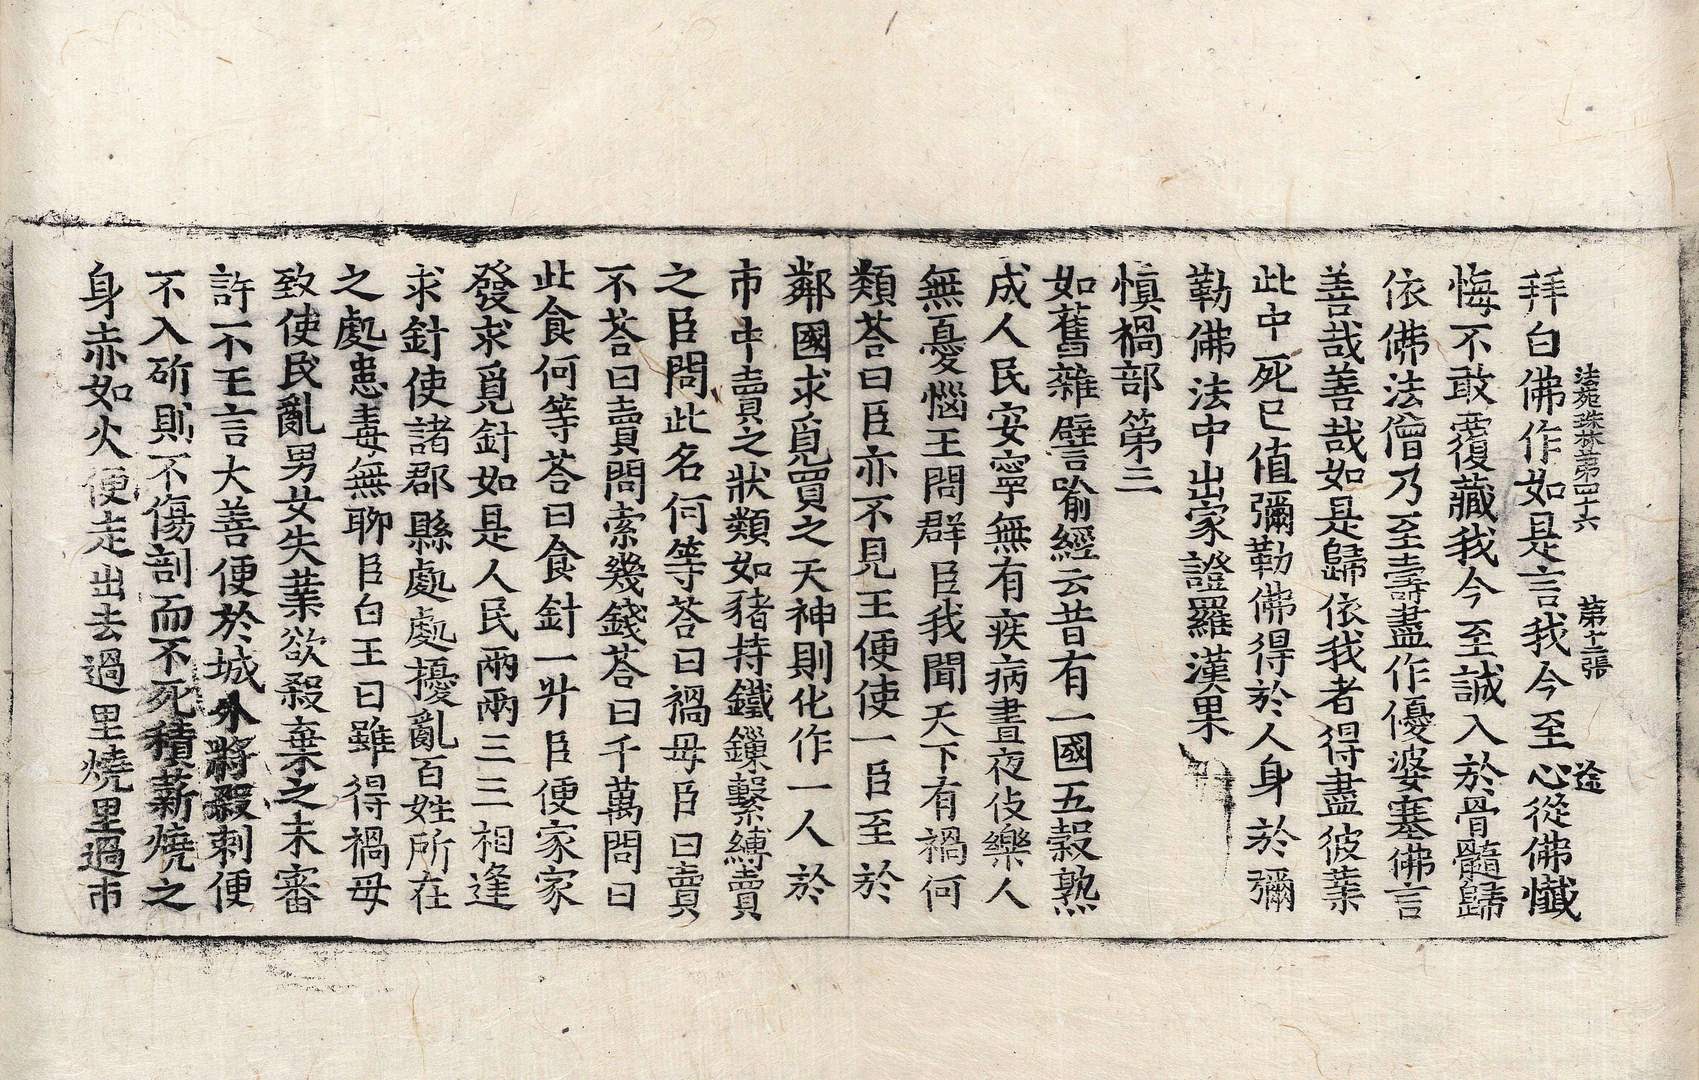 法苑珠林第四十六 第十二張 逵
拜白佛作如是言我今至心從佛懺
悔不敢覆藏我今至誠入於骨髓歸
依佛法僧乃至壽盡作優婆塞佛言
善哉善哉如是歸依我者得盡彼業
此中死已值彌勒佛得於人身於彌
勒佛法中出家證羅漢果
慎禍部第三
如舊雜譬喻經云昔有一國五穀熟
成人民安寧無有疾病晝夜伎樂人
無憂惱王問群臣我聞天下有禍何
類荅曰臣亦不見王便使一臣至於
鄰國求覓買之天神則化作一人於
市中賣之狀類如豬持鐵鏁繫縛賣
之臣問此名何等荅曰禍母臣曰賣
不荅曰賣問索幾錢荅曰千萬問曰
此食何等荅曰食針一升臣便家家
發求覓針如是人民兩兩三三相逢
求針使諸郡縣處處擾亂百姓所在
之處患毒無聊臣白王曰雖得禍母
致使民亂男女失業欲殺棄之未審
許不王言大善便於城外將殺刺便
不入斫則不傷剖而不死積薪燒之
身赤如火便走出去過里燒里過市